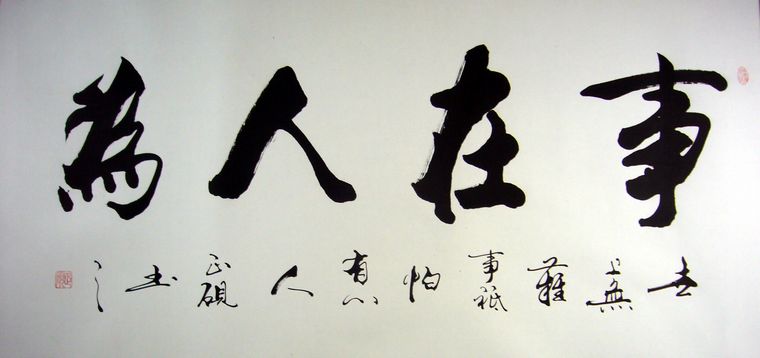 事在人為
世上無難事祇怕有心人正硯書之